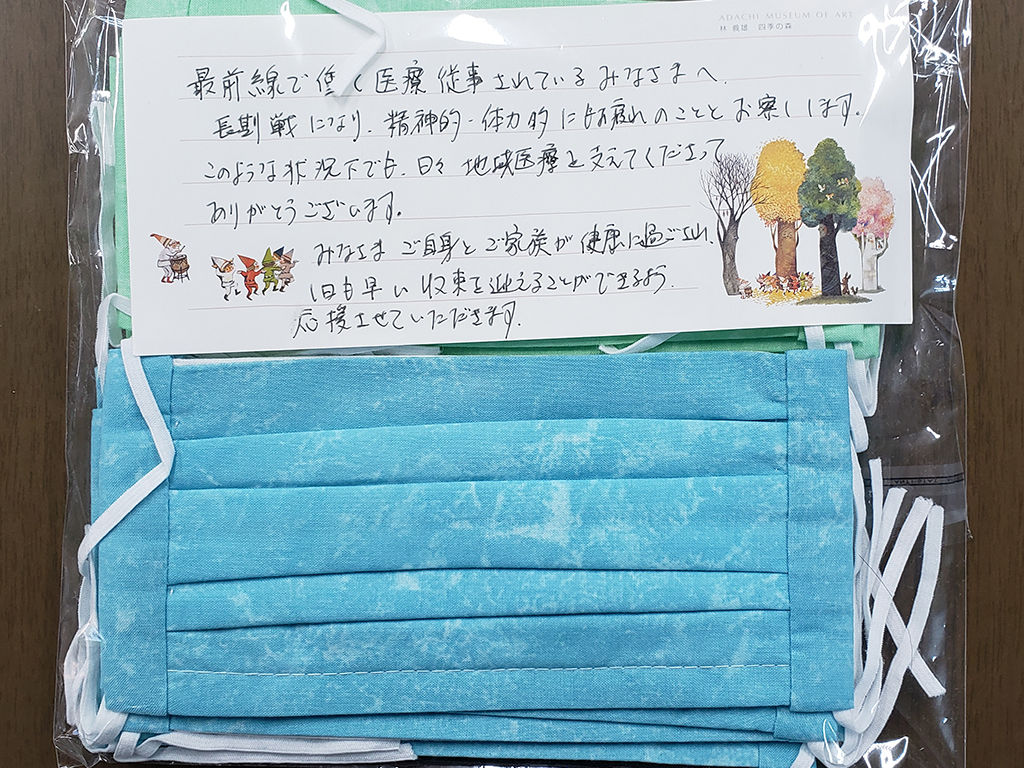 ADACHI MUSEUM OF ART
林 義雄 四季の森
最前線で働く医療従事されているみなさまへ.
長期戦になり、精神的・体力的にもお疲れのこととお察しします.
このような状況下でも、日々地域医療を支えてくださって
ありがとうございます.
みなさまご自身とご家族が健康に過ごされ、
1日も早い収束を迎えることができるよう.
応援させていただきます.